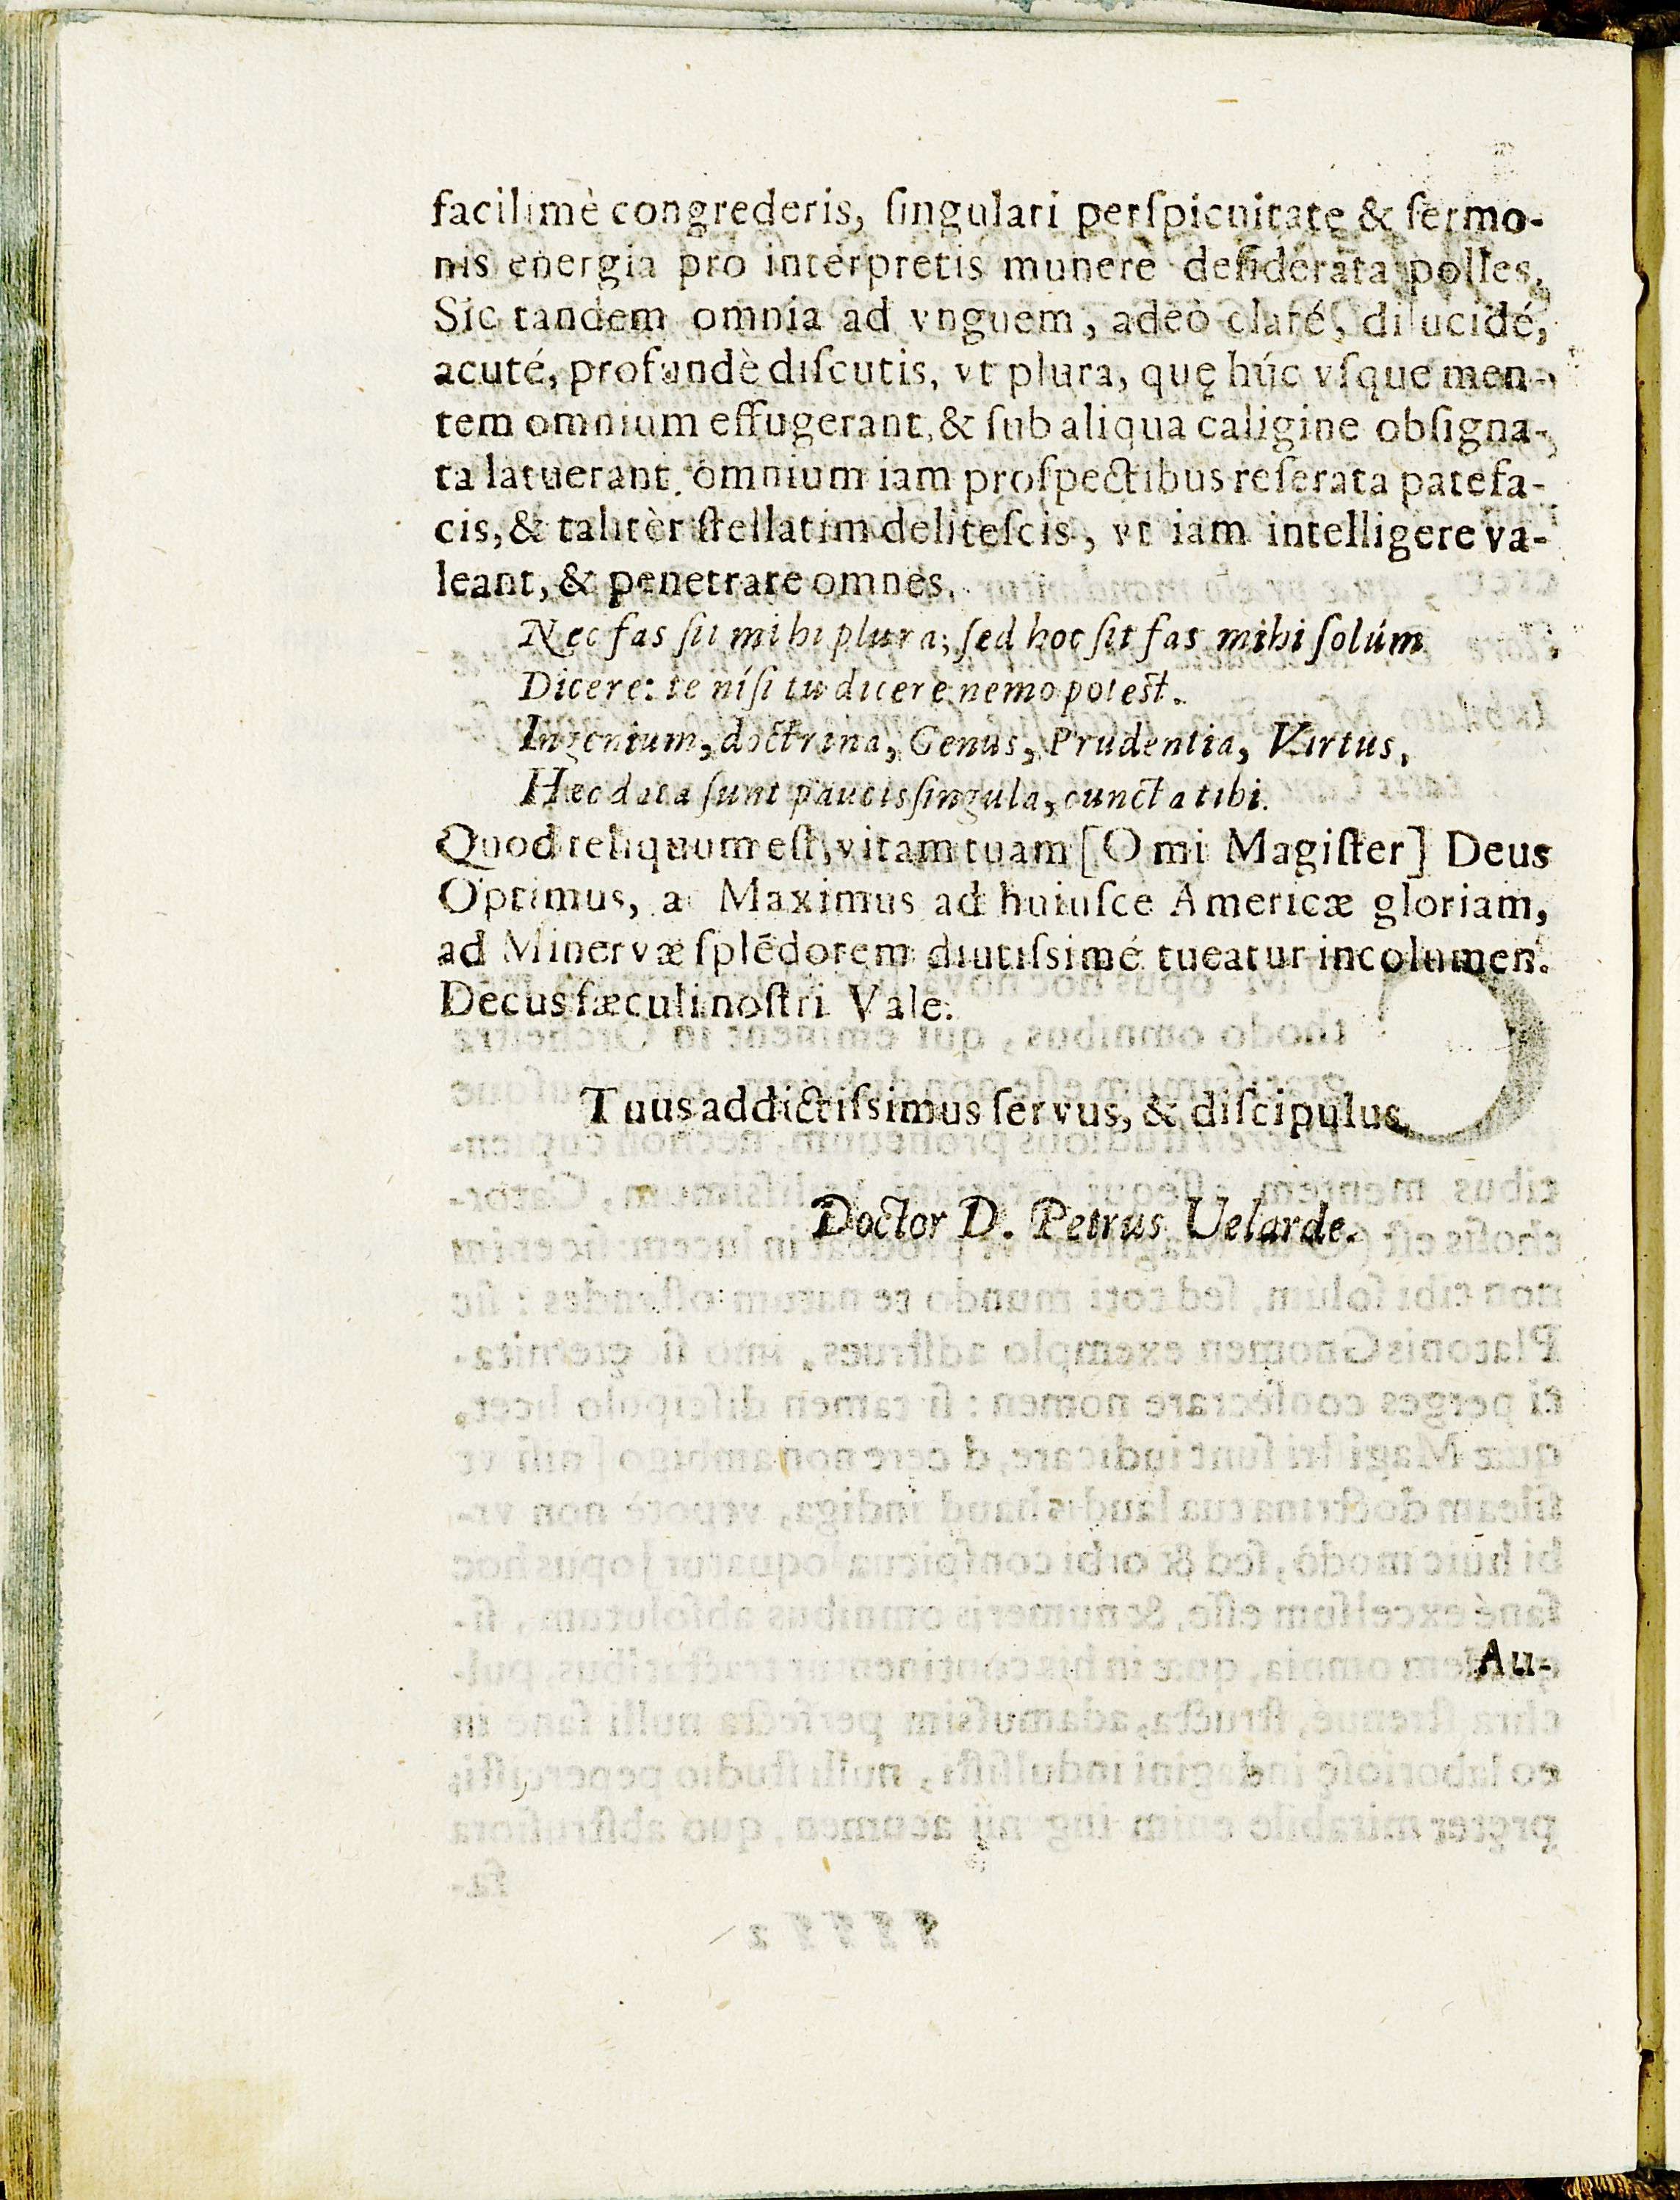 facilimè congrederis, ſingulari perſpicuitatę & ſermo-
nis energia pro interpretis munerè deſiderata polles,
Sic tandem omnia ad vnguem, adeò claré, dilucidé,
acuté, profundè diſcutis, vt plura, quę húc vſque men-
tem omnium effugerant, & ſub aliqua caligine obſigna-
ta latuerant, omnium iam proſpectibus reſerata patefa-
cis, & talitèr ſtellatim deliteſcis, vt iam intelligere va-
leant, & penetrare omnes.
Nec fas ſit mihi plura; ſed hoc ſit fas mihi ſolúm
Dicere: te niſi tu dicere nemo poteſt.
Ingenium, doctrina, Genus, Prudentia, Virtus,
Hæc data ſunt paucis ſingula, cuncta tibi.
Quod reliquum eſt, vitam tuam [O mi Magiſter] Deus
Optimus, a Maximus ad huiuſce Americæ gloriam,
ad Minervæ ſplēdorem diutiſsimé tueatur incolumen.
Decus ſæculi noſtri Vale.
Tuus addictiſsimus ſervus, & diſcipulus,
Doctor D. Petrus Uelarde.
Au-